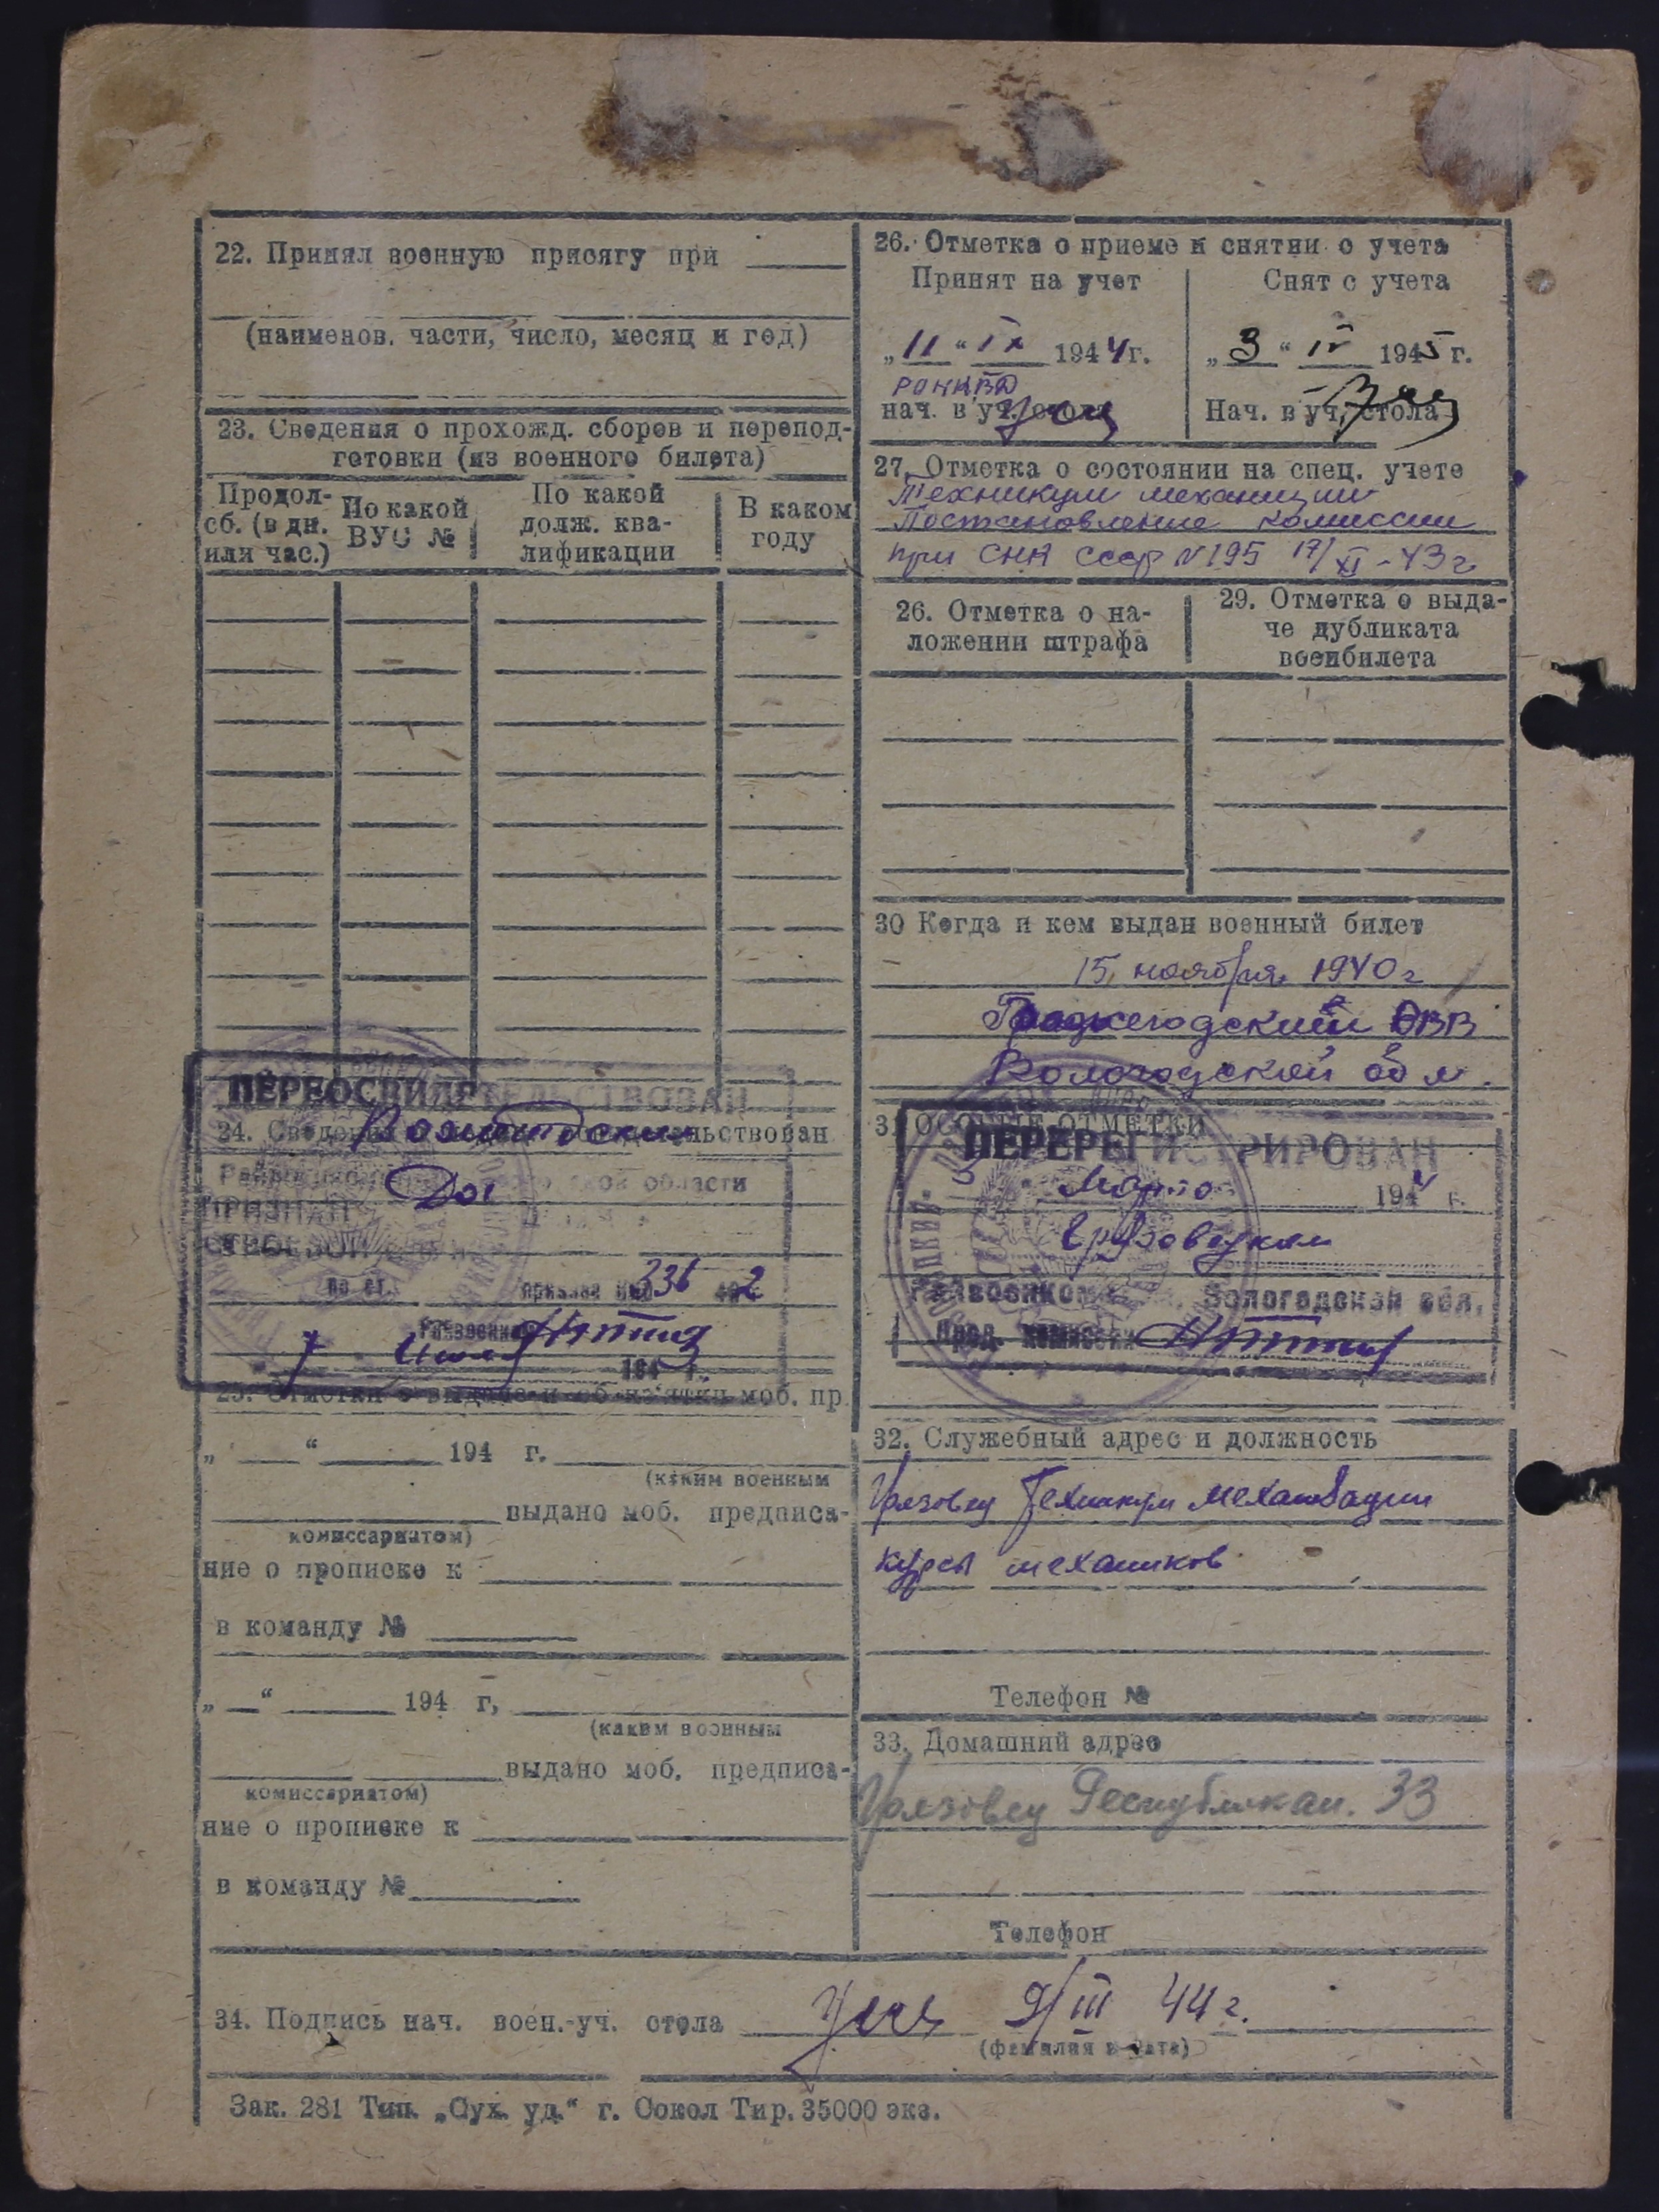 22. Принял военную присягу при
(наименов. части, число, месяц и год)
23. Сведения о прохожд. сборов и перепод-
готовки (из военного билета)
Продол-
сб. (в дн.
или час.)
По какой
ВУС №
По какой
долж. ква-
лификации
В каком
году
ПЕРЕОСВИДЕТЕЛЬСТВОВАН
24. Сведения
области
ПРИЗНАН
по ст. приказа НКО 336 42
7 194 г.
25. Отметки о выдаче и об из'ятии моб. пр.
„ “ 194 г.
(каким военным
выдано моб. предписа-
комиссариатом)
ние о прописке к
в команду №
„ “ 194 г,
(каким военным
выдано моб. предписа-
комиссариатом)
ние о прописке к
в команду №
26. Отметка о приеме и снятии с учета
Принят на учет
„11“ IX 1944 г.
РОНКВД
нач. в уч. стола
Снят с учета
„3“ IV 1945 г.
Нач. в уч. стола
27. Отметка о состоянии на спец. учете
Техникум механизации
Постановление комиссии
при СНК СССР N 195 17/XI-43 г
26. Отметка о на-
ложении штрафа
29. Отметка о выда-
че дубликата
воен билета
30 Когда и кем выдан военный билет
15 ноября 1940 г
РВК
Вологодской обл.
31 ОСОБЫЕ ОТМЕТКИ
ПЕРЕРЕГИСТРИРОВАН
Марта 1944 г.
Грязовецким
Райвоенкоматом, Вологодской обл.
Пред. комиссии
32. Служебный адрес и должность
Грязовец Техникум механизации
курсы механиков
Телефон №
33. Домашний адрес
Грязовец Республикан. 33
Телефон
34. Подпись нач. воен.-уч. стола 9/III 44 г.
(фамилия и дата)
Зак. 281 Тип. „Сух. уд.“ г. Сокол Тир. 35000 экз.